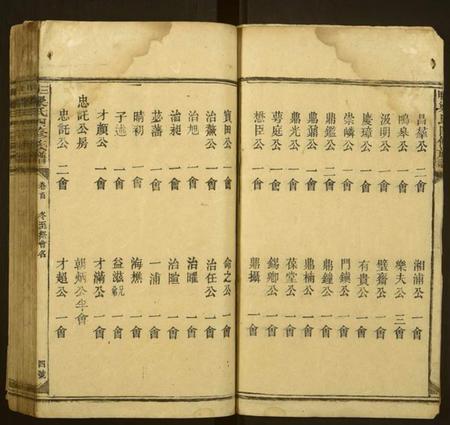 昌犖公 二會 湘浦公 一會
鳴皋公 一會 樂夫公 三會
汲明公 一會 璧齋公 一會
慶璋公 一會 有貴公 一會
崇嶙公 一會 門鎮公 一會
鼎鑑公 二會 鼎鐘公 一會
鼎鼐公 一會 鼎楠公 一會
鼎光公 一會 葆堂公 一會
蕚庭公 一會 錫卿公 一會
懋臣公 一會 鼎攝 一會
寶田公 一會 命之公 一會
治薇公 二會 治任公 一會
治旭 一會 治曜 一會
治昶 一會 治暄 一會
苾藩 一會 一浦 一會
晴初 一會 海樵 一會
子逵 一會 益滋 一會
才顏公 一會 才滿公 一會
忠託公房 朝炳公 半會
忠託公 二會 才超公 一會
卷首 冬至祭會名 四號